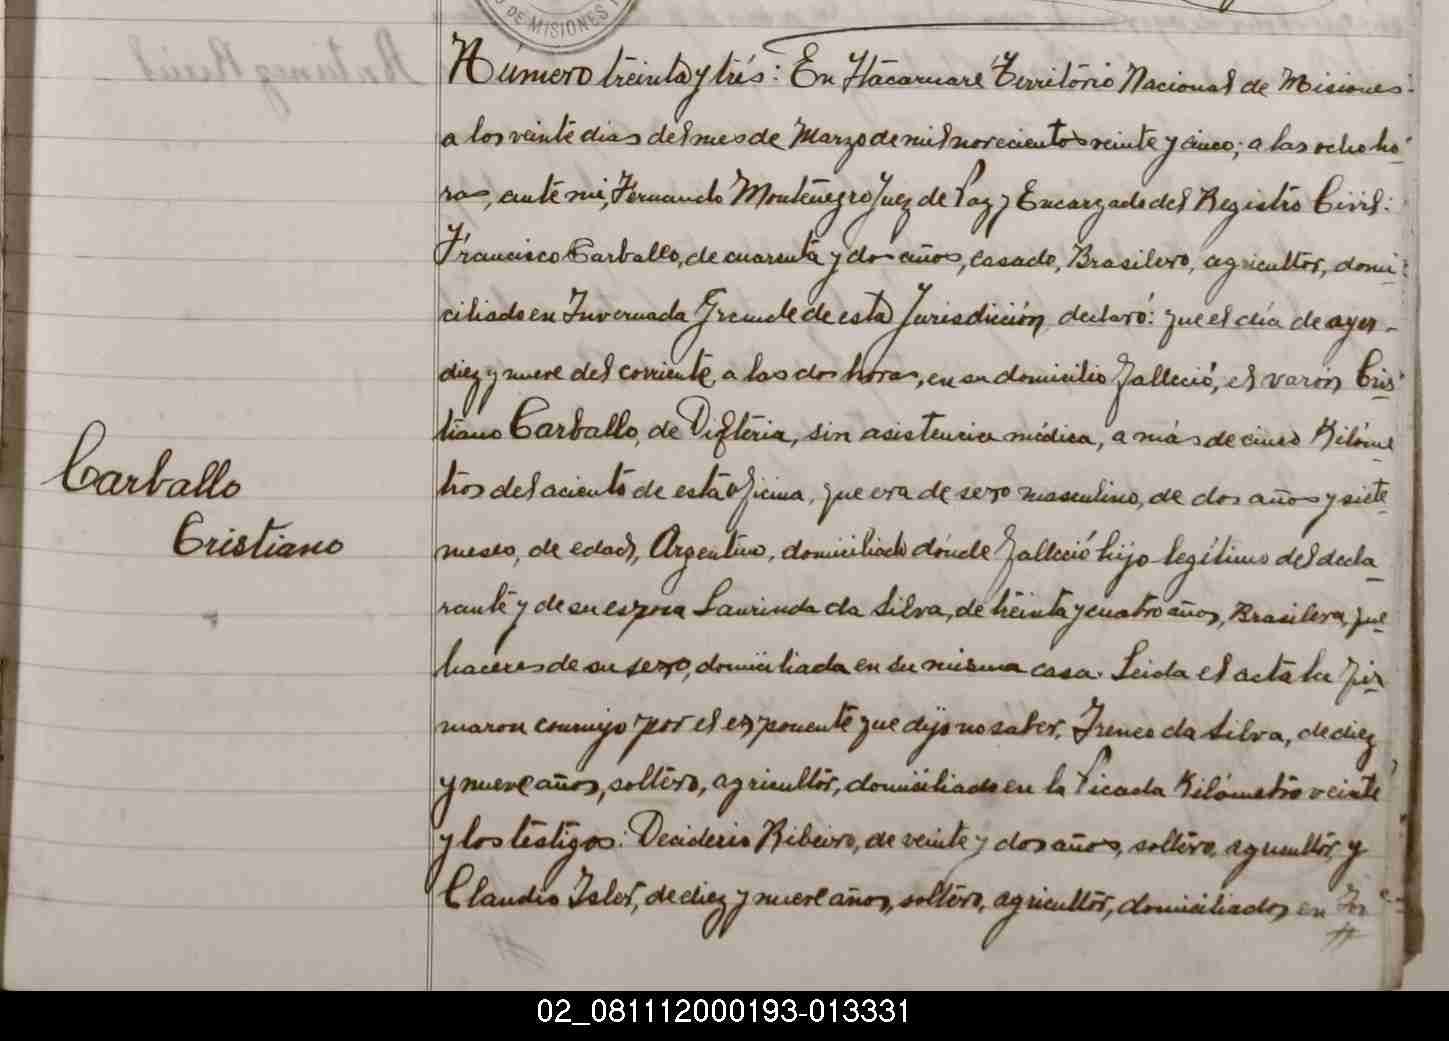 DE MISIONES
Número treinta y trés: En Itacaruaré Território Nacional de Misiones-
a los veinte dias del mes de Marzo de mil novecientos veinte y cinco; a las ocho ho-
ras, ante mi, Fernando Montenegro Juez de Paz y Encargado del Registro Civil:
Francisco Carballo, de cuarenta y dos años, casado, Brasilero, agricultor, domi-
ciliado en Invernada Grande de esta Jurisdición, declaró: que el día de ayer-
diez y nueve del corriente, a las dos horas, en su domicilio falleció, el varón Cris-
tiano Carballo, de Difteria, sin asistencia médica, a más de cinco Kilóme-
tros del aciento de esta oficina, que era de sexo masculino, de dos años y siete
meses, de edad, Argentino, domiciliado dónde falleció hijo legítimo del decla-
rante y de su esposa Laurinda da Silva, de treinta y cuatro años, Brasilera, que-
haceres de su sexo, domiciliada en su misma casa. Leida el acta la fir-
Carballo
Cristiano
maron conmigo por el exponente que dijo no saber, Ireneo da Silva, de diez
y nueve años, soltero, agricultor, domiciliado en la Picada Kilómetro veinte
y los testigos: Deciderio Ribeiro, de veinte y dos años, soltero, agricultor, y
Claudio Isler, de diez y nueve años, soltero, agricultor, domiciliados en
02_081112000193-013331